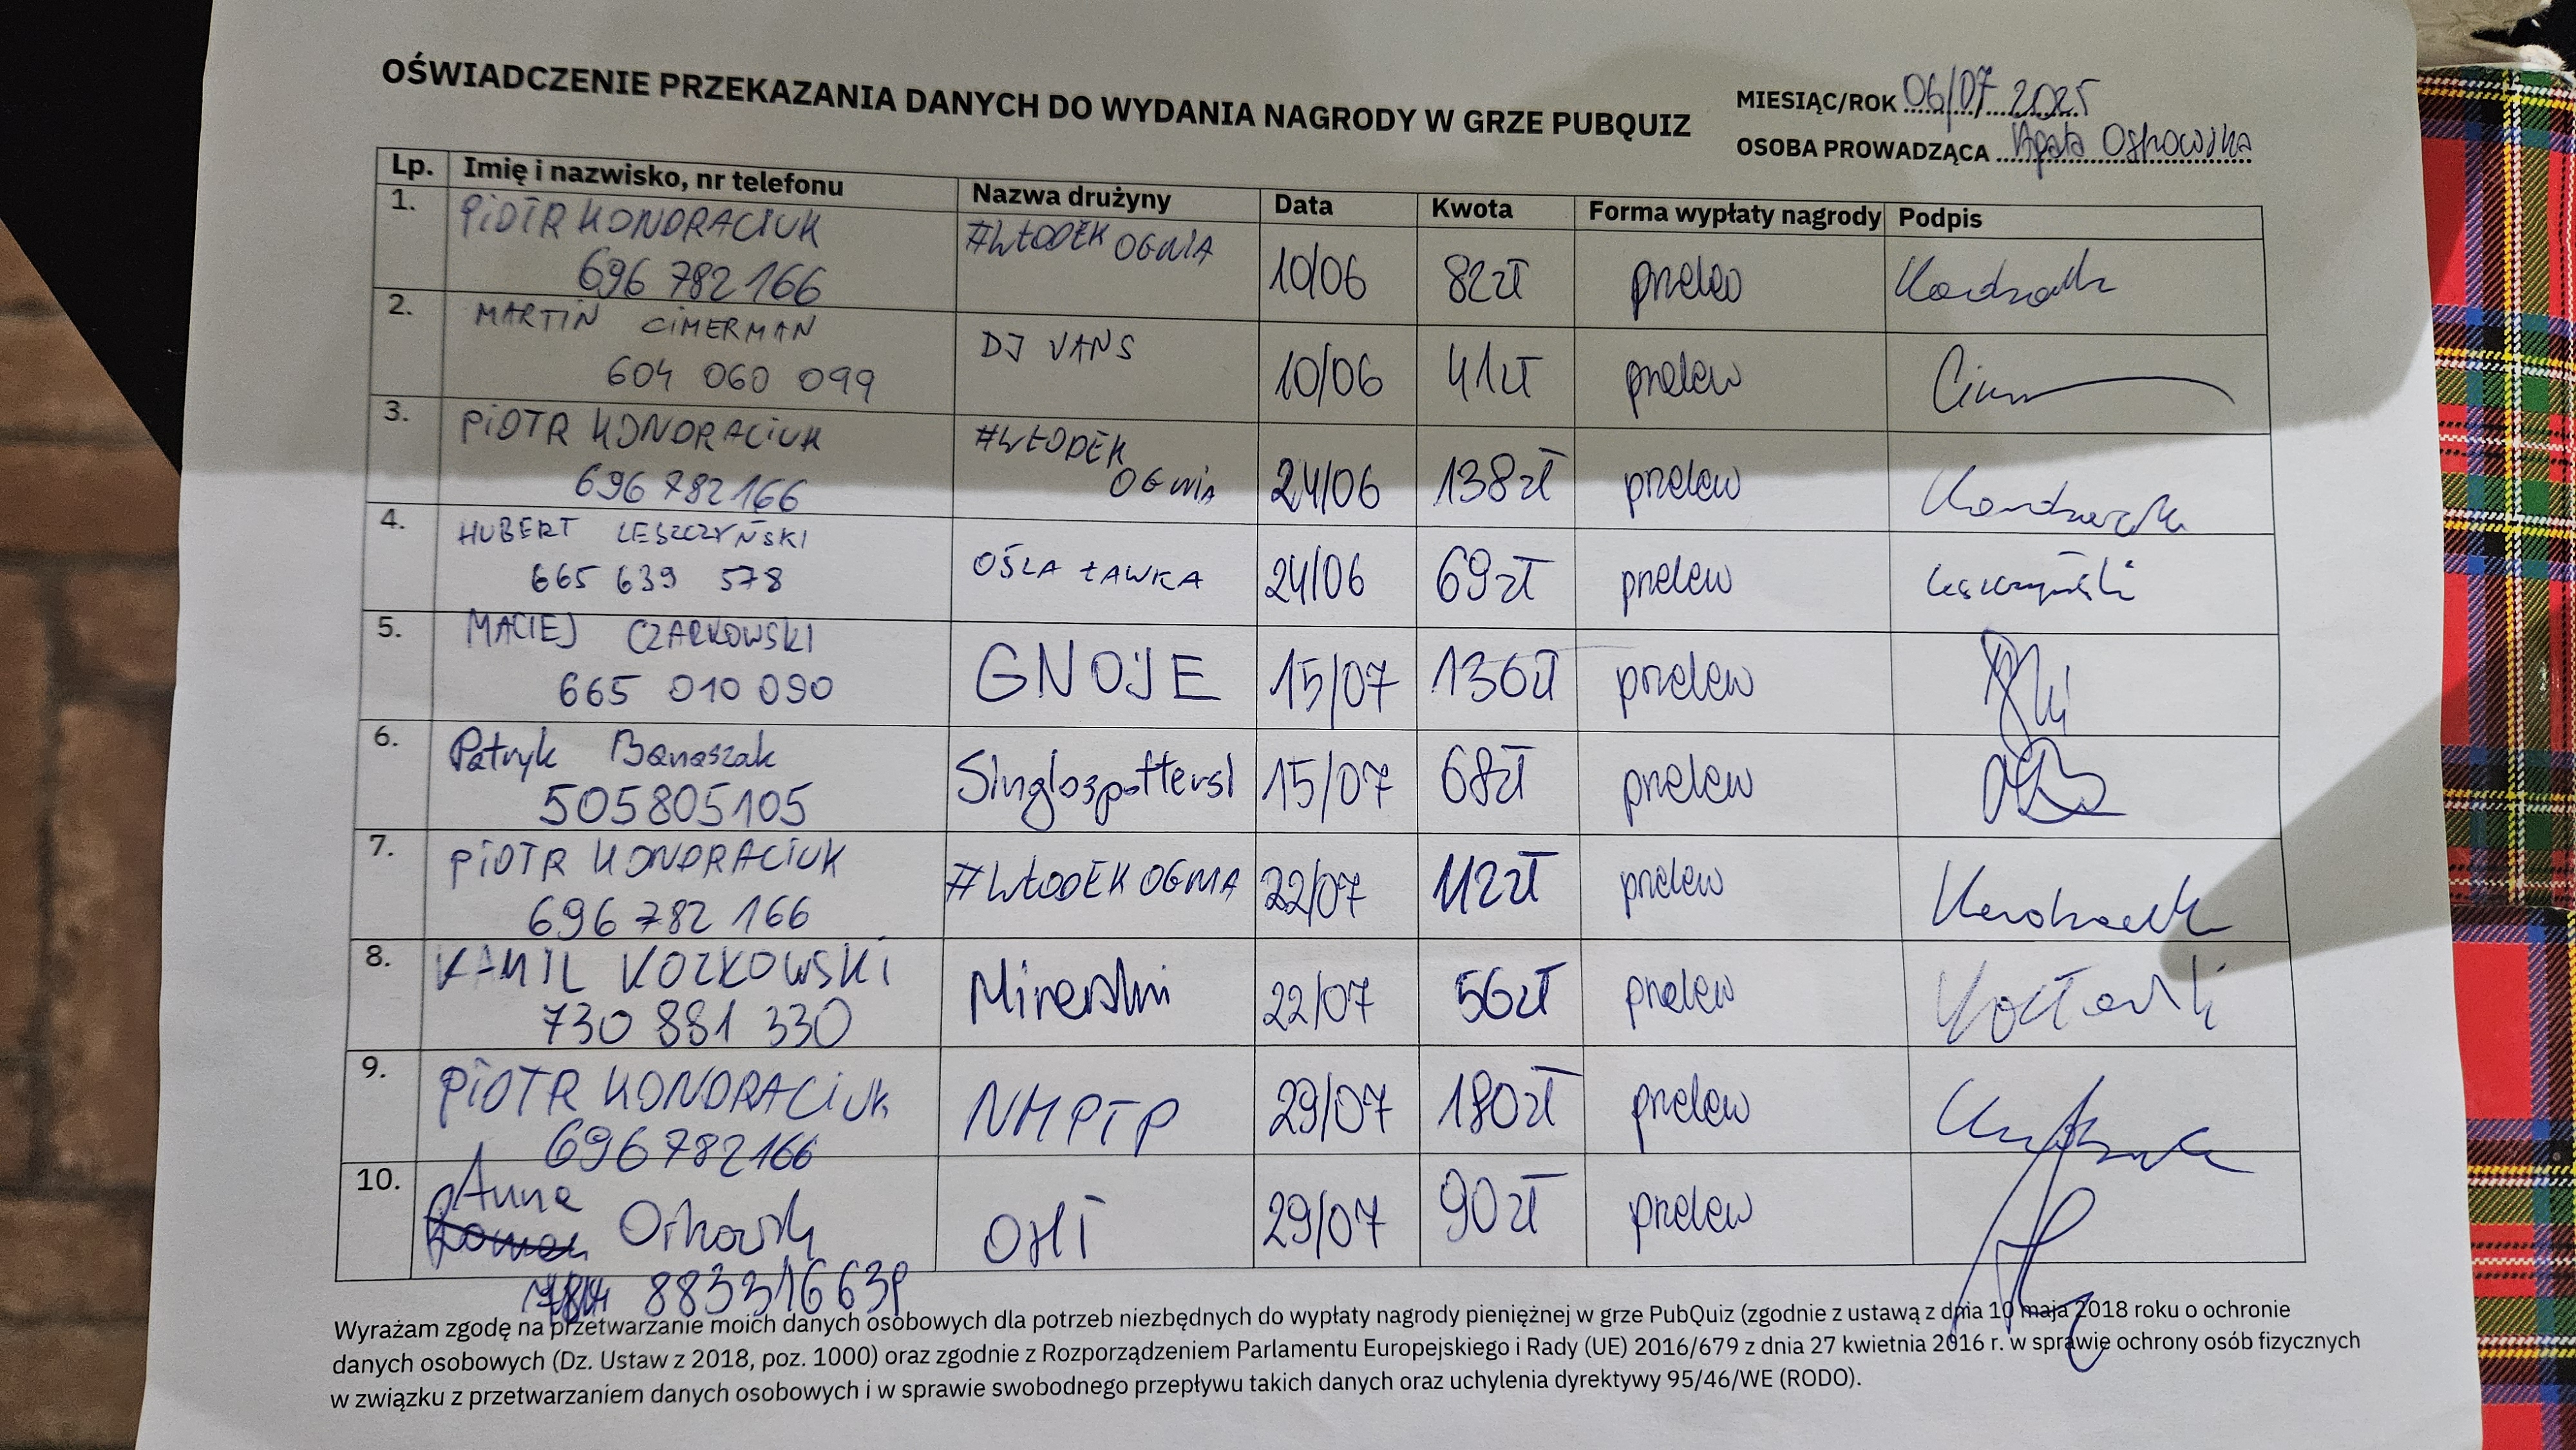 OŚWIADCZENIE PRZEKAZANIA DANYCH DO WYDANIA NAGRODY W GRZE PUBQUIZ
MIESIĄC/ROK 06/07 2025
OSOBA PROWADZĄCA Agata
Lp. Imię i nazwisko, nr telefonu Nazwa drużyny Data Kwota Forma wypłaty nagrody Podpis
1. PIOTR KONDRACIUK #WŁODEK OGNIA
696 782 166 10/06 82zł przelew
2. MARTIN CIMERMAN DJ VANS
604 060 099 10/06 41zł przelew
3. PIOTR KONDRACIUK #WŁODEK
696 782 166 OGNIA 24/06 138zł przelew
4. HUBERT LESZCZYŃSKI
665 639 578 OŚLA ŁAWKA 24/06 69zł przelew Leszczyński
5. MACIEJ CZARKOWSKI
665 010 090 GNOJE 15/07 136zł przelew
6. Patryk Banaszak
505805105 15/07 68zł przelew
7. PIOTR KONDRACIUK
696 782 166 #WŁODEK OGNIA 22/07 112zł przelew
8. KAMIL KOZŁOWSKI
730 881 330 22/07 56zł przelew
9. PIOTR KONDRACIUK
696782166 NMPTP 29/07 180zł przelew
10. Anna
29/07 90zł przelew
Wyrażam zgodę na przetwarzanie moich danych osobowych dla potrzeb niezbędnych do wypłaty nagrody pieniężnej w grze PubQuiz (zgodnie z ustawą z dnia 10 maja 2018 roku o ochronie
danych osobowych (Dz. Ustaw z 2018, poz. 1000) oraz zgodnie z Rozporządzeniem Parlamentu Europejskiego i Rady (UE) 2016/679 z dnia 27 kwietnia 2016 r. w sprawie ochrony osób fizycznych
w związku z przetwarzaniem danych osobowych i w sprawie swobodnego przepływu takich danych oraz uchylenia dyrektywy 95/46/WE (RODO).